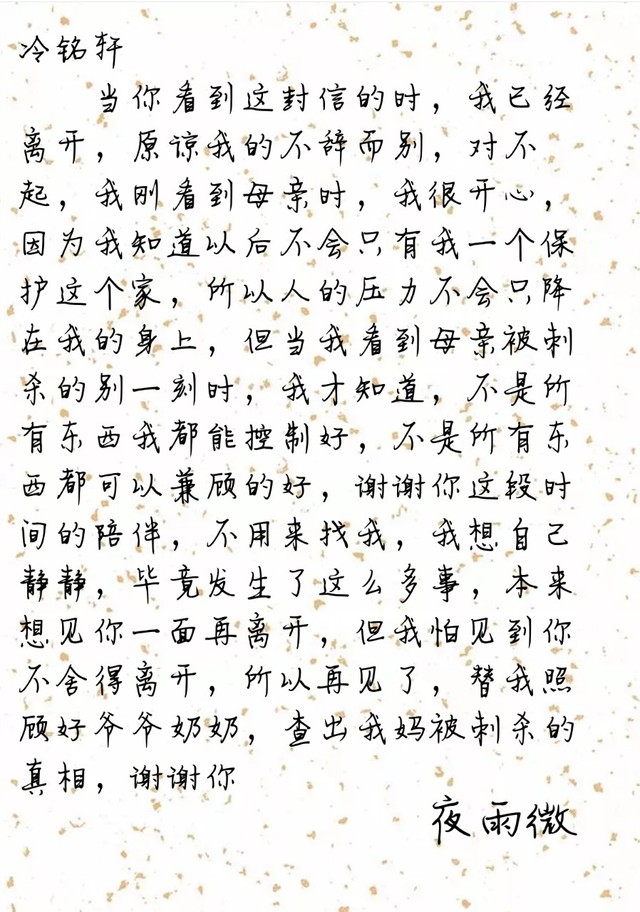 冷铭轩
当你看到这封信的时，我已经
离开，原谅我的不辞而别，对不
起，我刚看到母亲时，我很开心，
因为我知道以后不会只有我一个保
护这个家，所以人的压力不会只降
在我的身上，但当我看到母亲被刺
杀的别一刻时，我才知道，不是所
有东西我都能控制好，不是所有东
西都可以兼顾的好，谢谢你这段时
间的陪伴，不用来找我，我想自己
静静，毕竟发生了这么多事，本来
想见你一面再离开，但我怕见到你
不舍得离开，所以再见了，替我照
顾好爷爷奶奶，查出我妈被刺杀的
真相，谢谢你
夜雨微